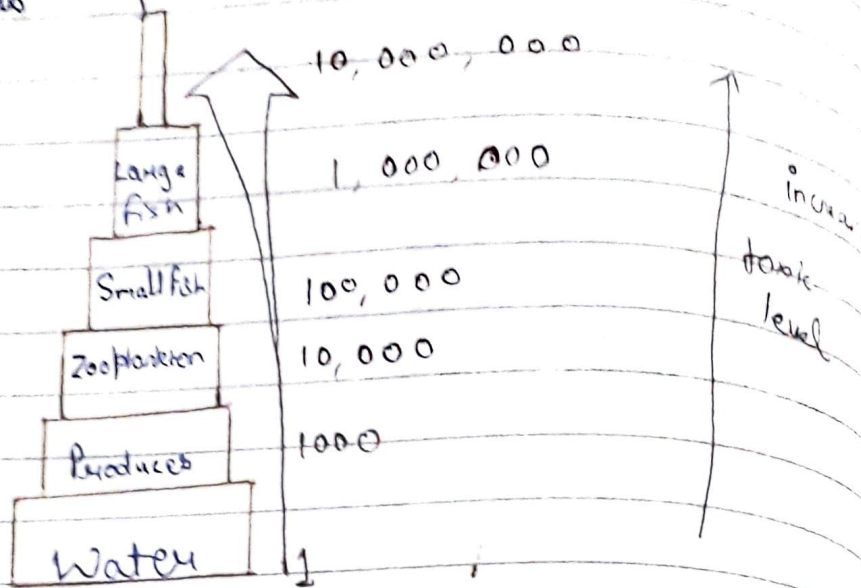 10,000,000
Large
fish
1,000,000
Small fish
100,000
Zooplankton
10,000
Producers
1000
Water
1
toxic
level